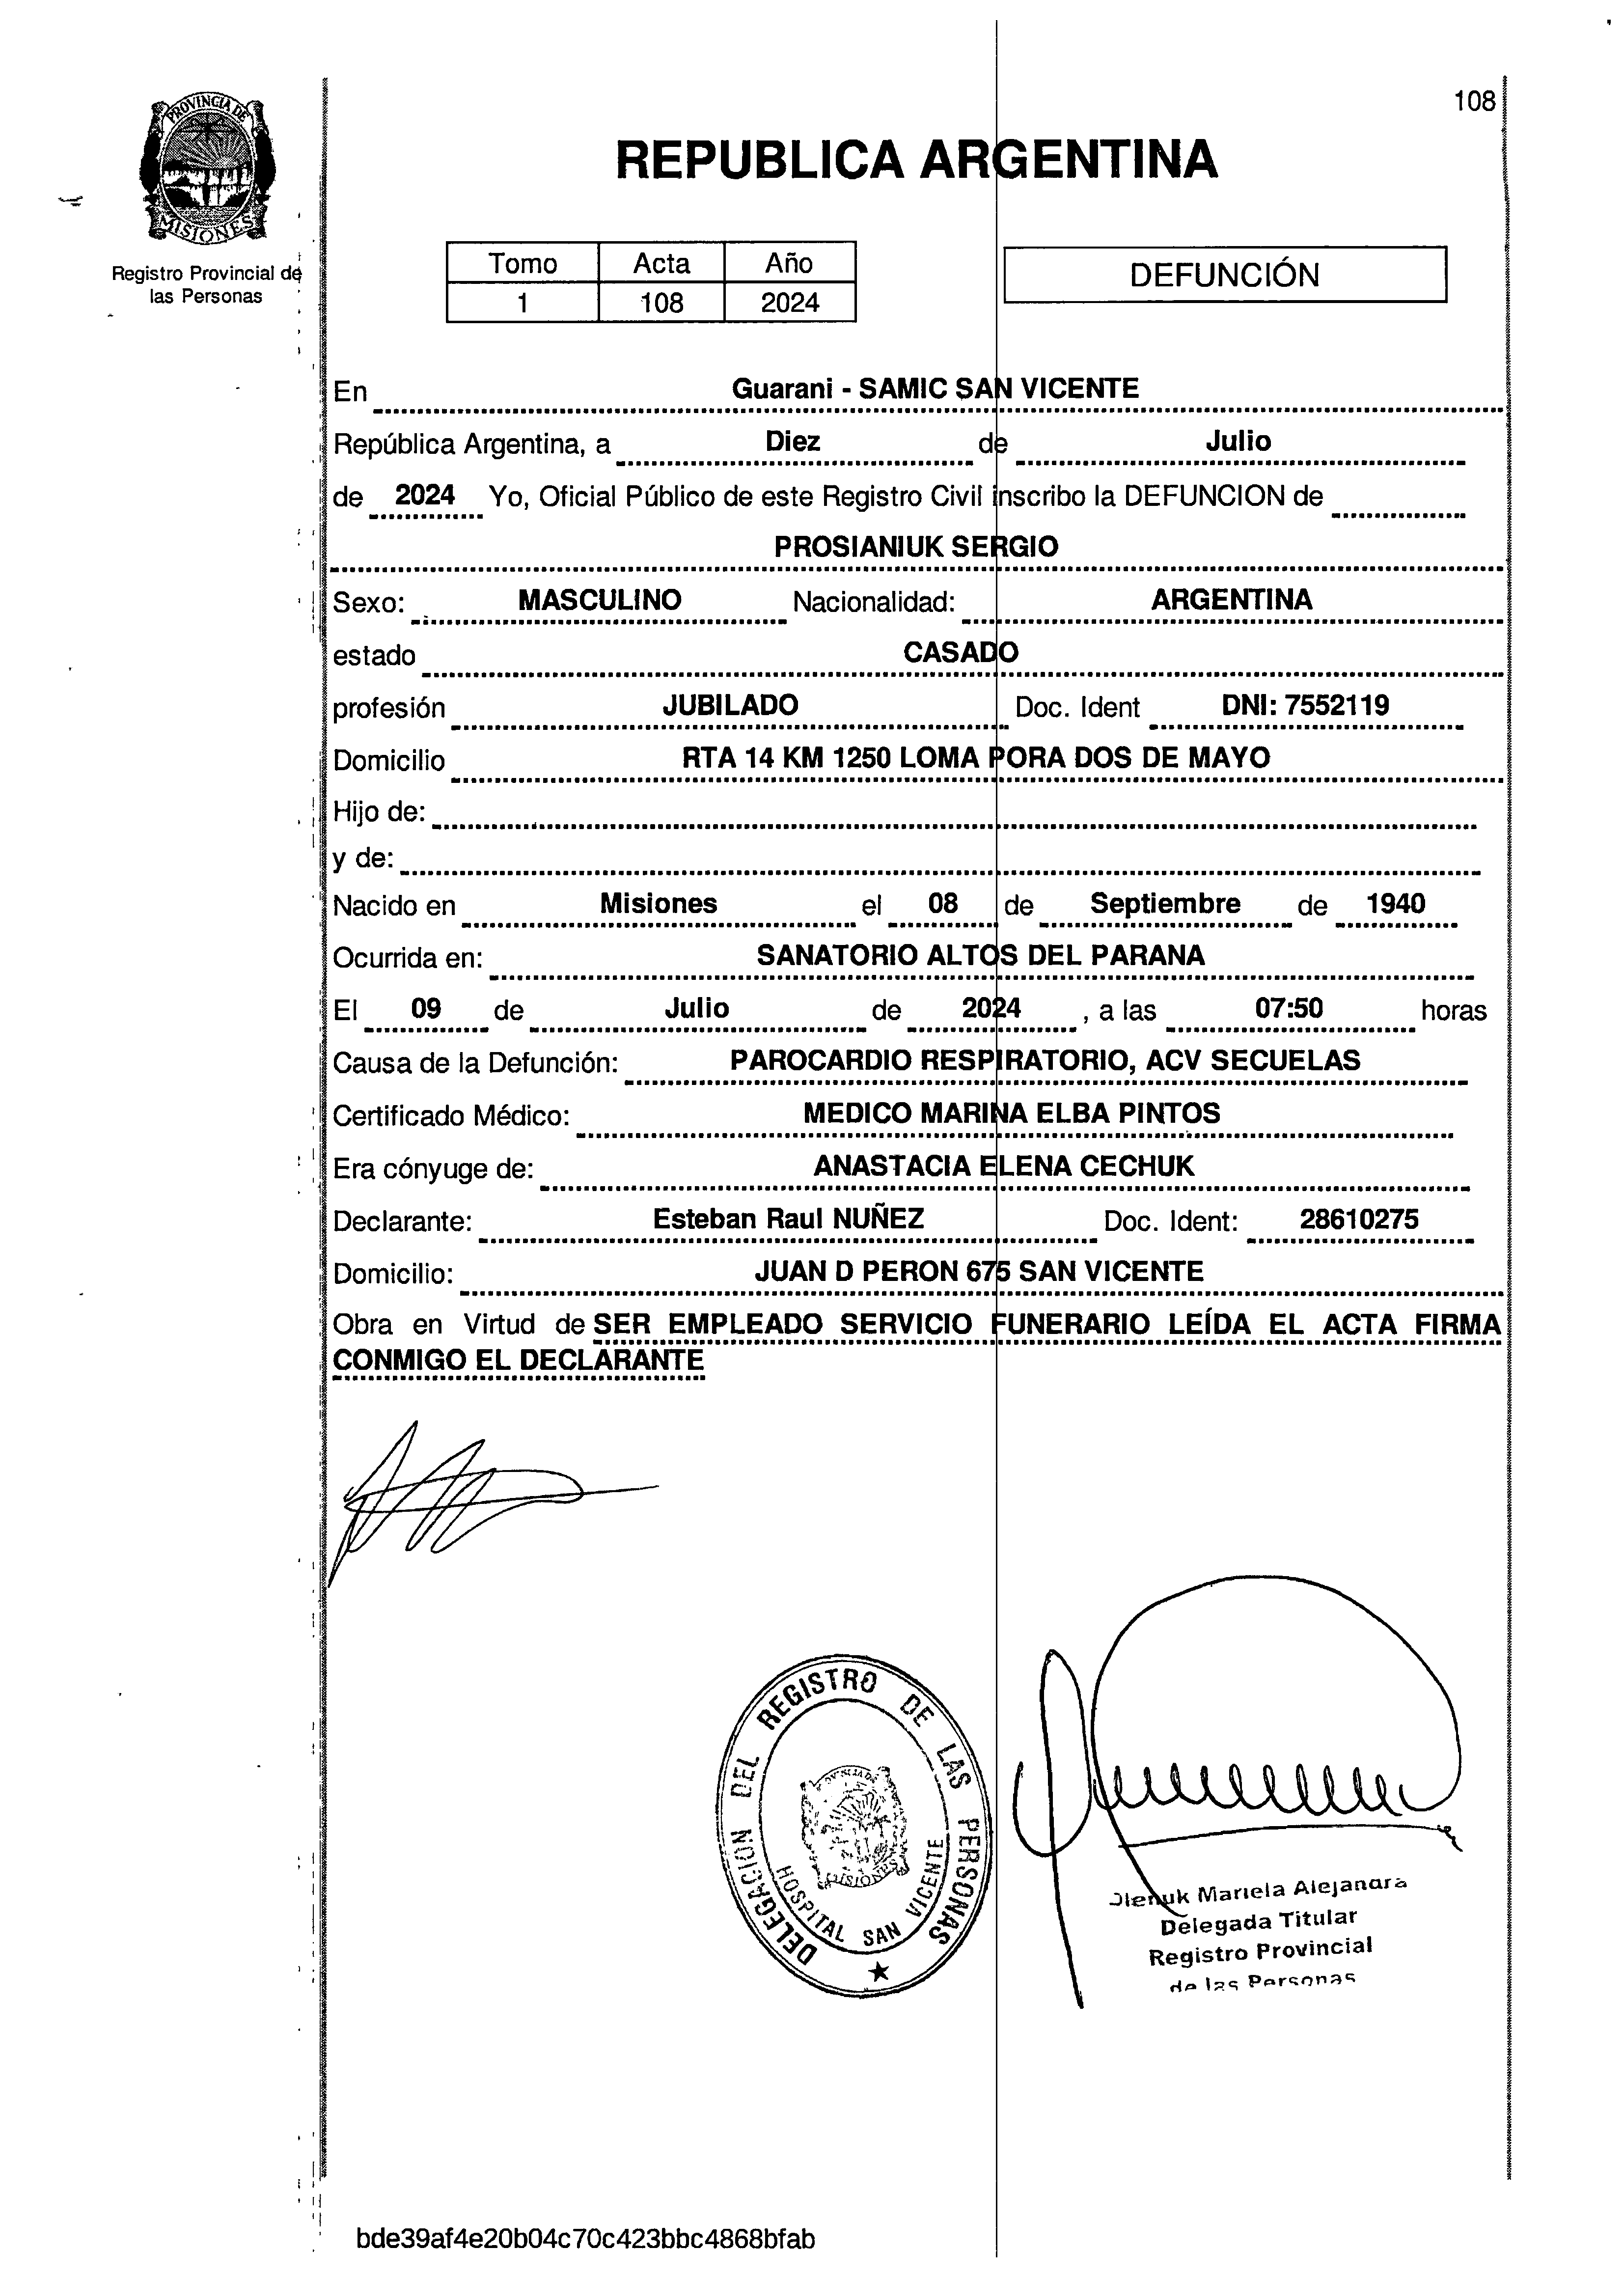 108
PROVINCIA DE
MISIONES
Registro Provincial de
las Personas
REPUBLICA ARGENTINA
Tomo Acta Año
1 108 2024
DEFUNCIÓN
En Guarani - SAMIC SAN VICENTE
República Argentina, a Diez de Julio
de 2024 Yo, Oficial Público de este Registro Civil inscribo la DEFUNCION de
PROSIANIUK SERGIO
Sexo: MASCULINO Nacionalidad: ARGENTINA
estado CASADO
profesión JUBILADO Doc. Ident DNI: 7552119
Domicilio RTA 14 KM 1250 LOMA PORA DOS DE MAYO
Hijo de:
y de:
Nacido en Misiones el 08 de Septiembre de 1940
Ocurrida en: SANATORIO ALTOS DEL PARANA
El 09 de Julio de 2024 , a las 07:50 horas
Causa de la Defunción: PAROCARDIO RESPIRATORIO, ACV SECUELAS
Certificado Médico: MEDICO MARINA ELBA PINTOS
Era cónyuge de: ANASTACIA ELENA CECHUK
Declarante: Esteban Raul NUÑEZ Doc. Ident: 28610275
Domicilio: JUAN D PERON 675 SAN VICENTE
Obra en Virtud de SER EMPLEADO SERVICIO FUNERARIO LEÍDA EL ACTA FIRMA
CONMIGO EL DECLARANTE
DELEGACION DEL REGISTRO DE LAS PERSONAS
HOSPITAL SAN VICENTE
MISIONES
Mariela Alejandra
Delegada Titular
Registro Provincial
de las Personas
bde39af4e20b04c70c423bbc4868bfab